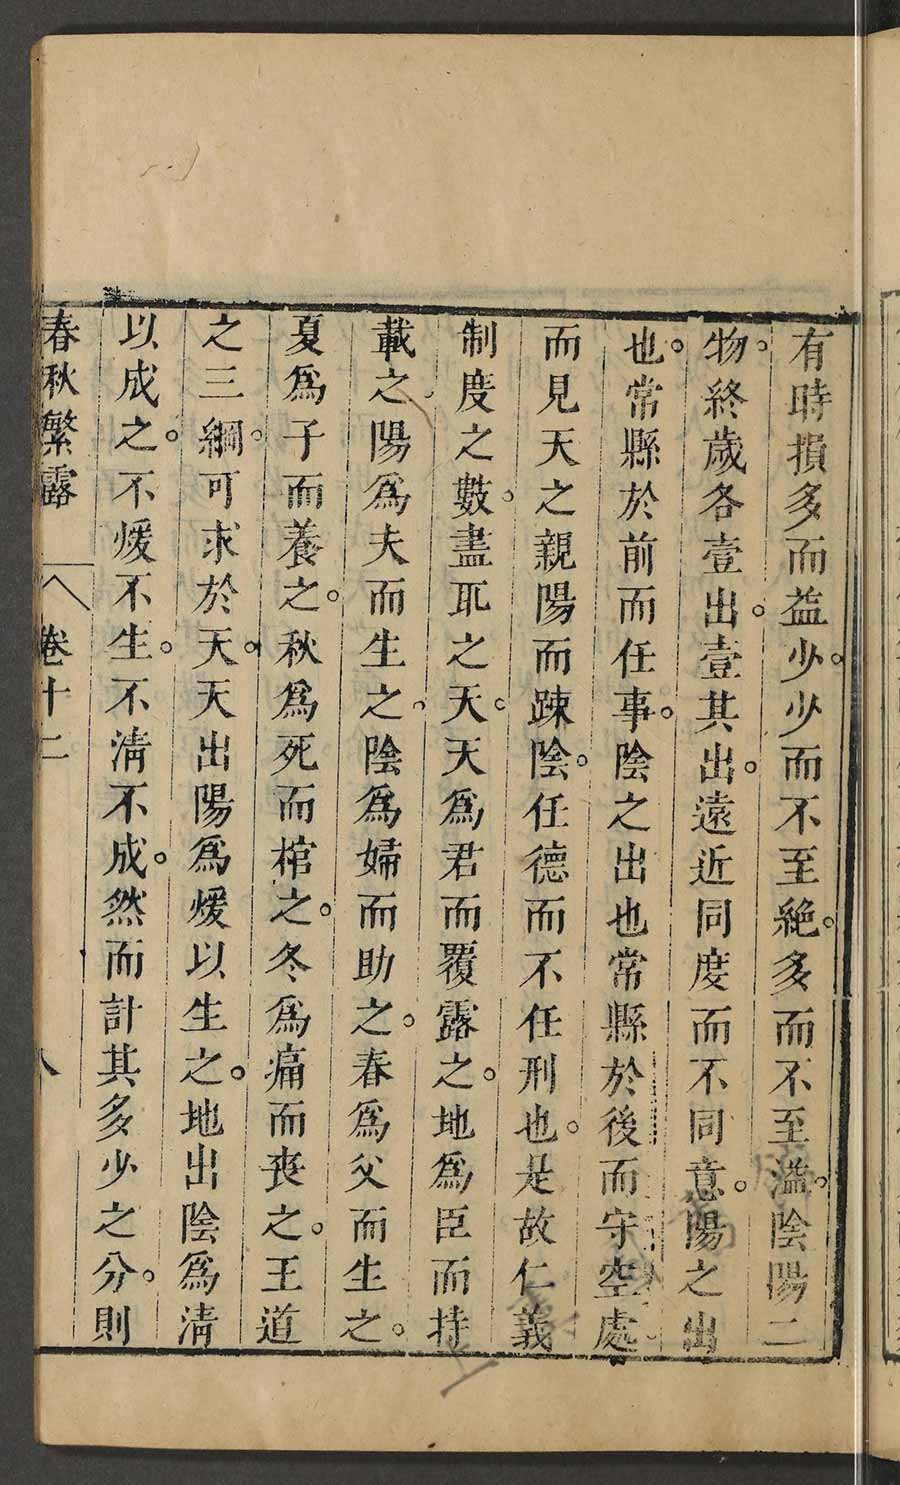 有時損多而益少。少而不至絕。多而不至溢。陰陽二
物。終歲各壹出。壹其出。遠近同度而不同意。陽之出
也。常縣於前而任事。陰之出也常縣於後而守空處。
而見天之親陽而踈陰。任德而不任刑也。是故仁義
制度之數。盡取之天。天為君而覆露之。地為臣而持
載之。陽為夫而生之。陰為婦而助之。春為父而生之。
夏為子而養之。秋為死而棺之。冬為痛而喪之。王道
之三綱。可求於天。天出陽為煖以生之。地出陰為清
以成之。不煖不生。不清不成。然而計其多少之分。則
春秋繁露 卷十二 八